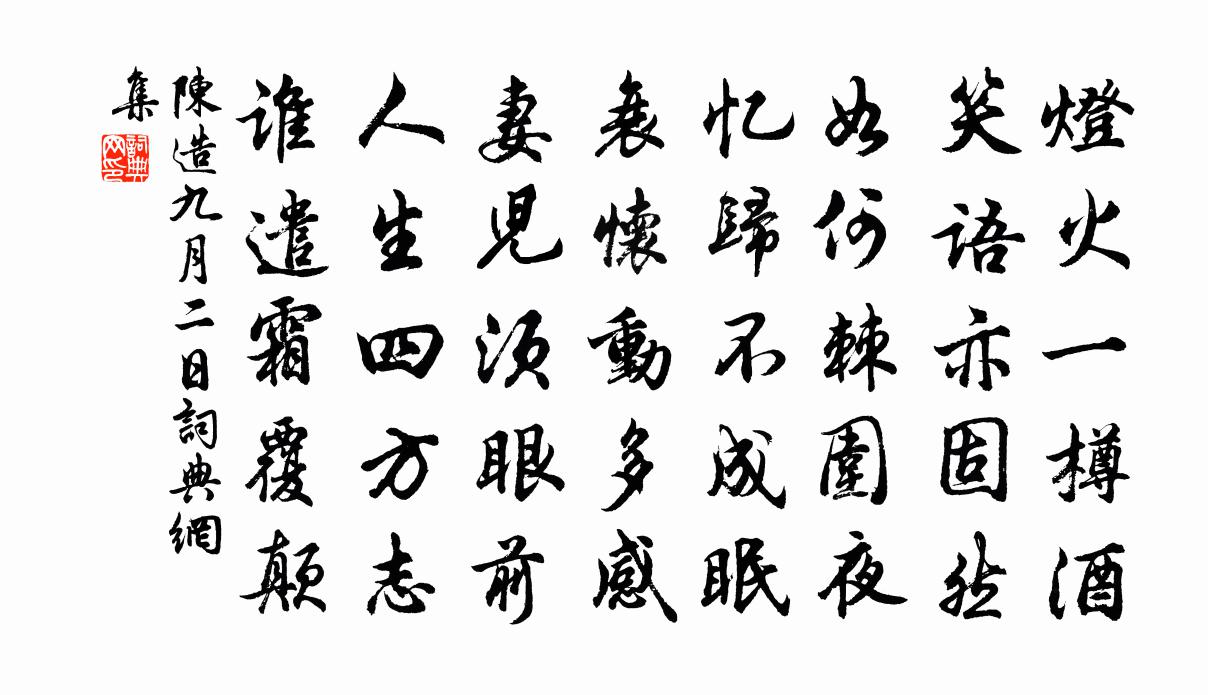 燈火一樽酒
笑語亦固然
如何棘圍夜
忆歸不成眠
衰懷動多感
妻児須眼前
人生四方志
谁遣霜覆颠
陳造九月二日詞典網
集
詞典网印